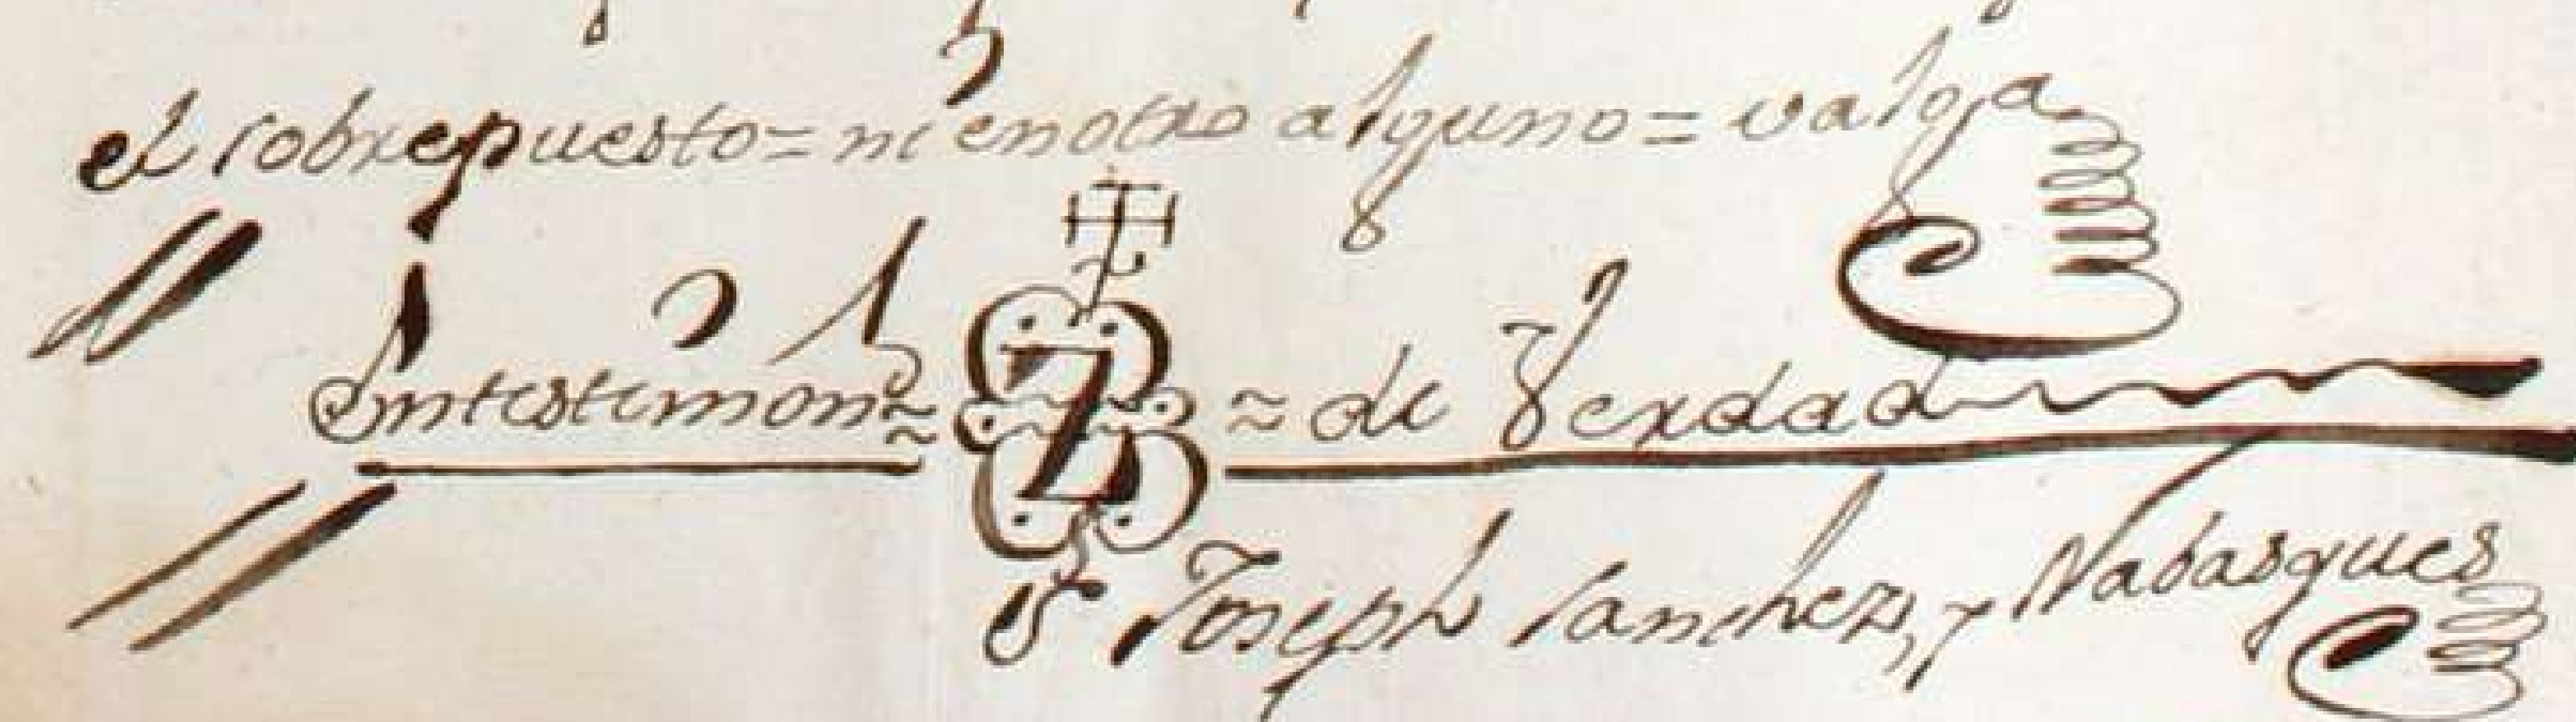 el sobrepuesto = ni en otro alguno = valga
En testimonº de Verdad
Joseph Sanchez, y Nabasques